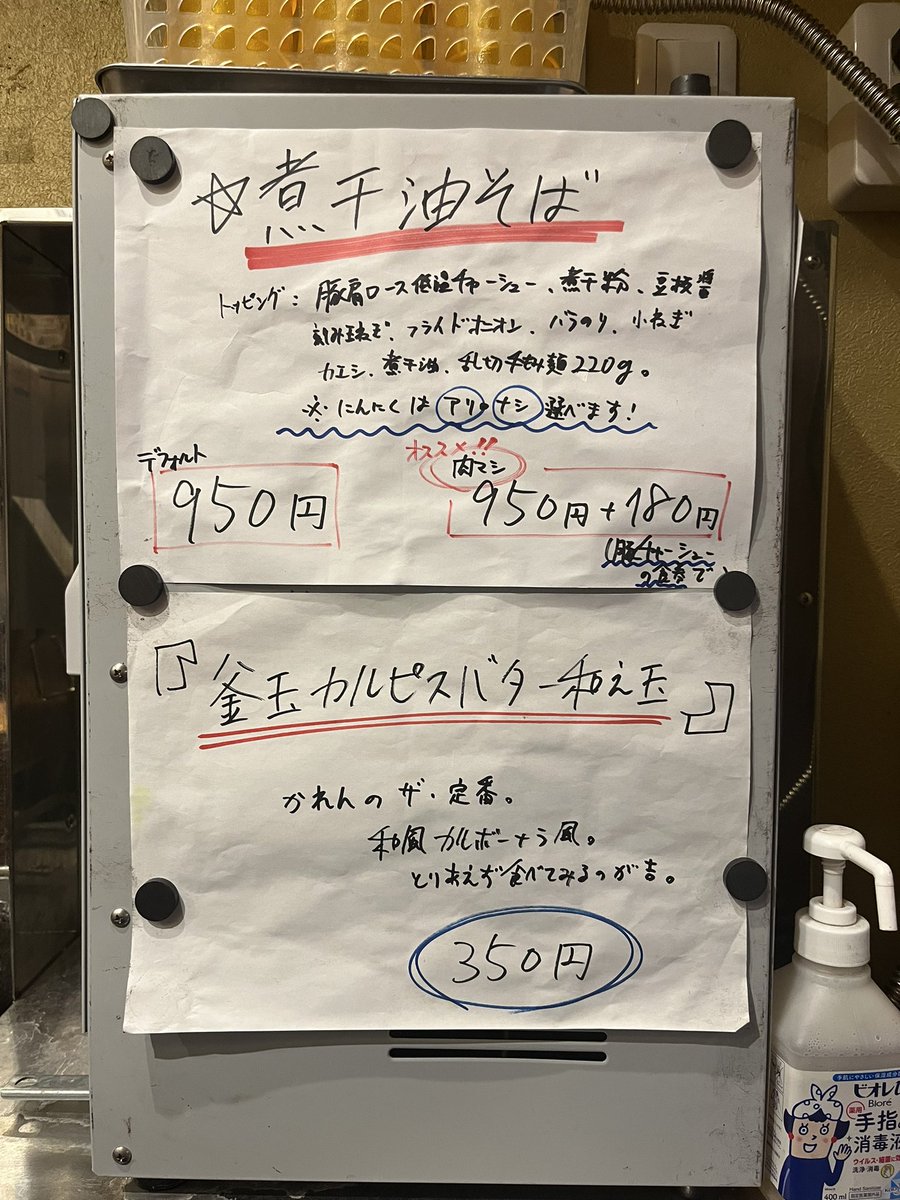 ☆煮干油そば
トッピング：豚肩ロース低温チャーシュー、煮干粉、豆板醤
刻み玉ねぎ、フライドオニオン、バラのり、小ねぎ
カエシ、煮干油、乱切手もみ麺220g。
※にんにくはアリ・ナシ選べます!
デフォルト
950円
オススメ!!
肉マシ
950円+180円
(豚チャーシュー
の食券で)
『釜玉カルピスバター和え玉』
かれんのザ・定番。
和風カルボナーラ風。
とりあえず食べてみるのが吉。
350円
手肌にやさしい
ビオレ
Bioré
薬用
手指
消毒液
ウイルス・細菌に
洗浄・消毒
Hand Sanitizer
400ml